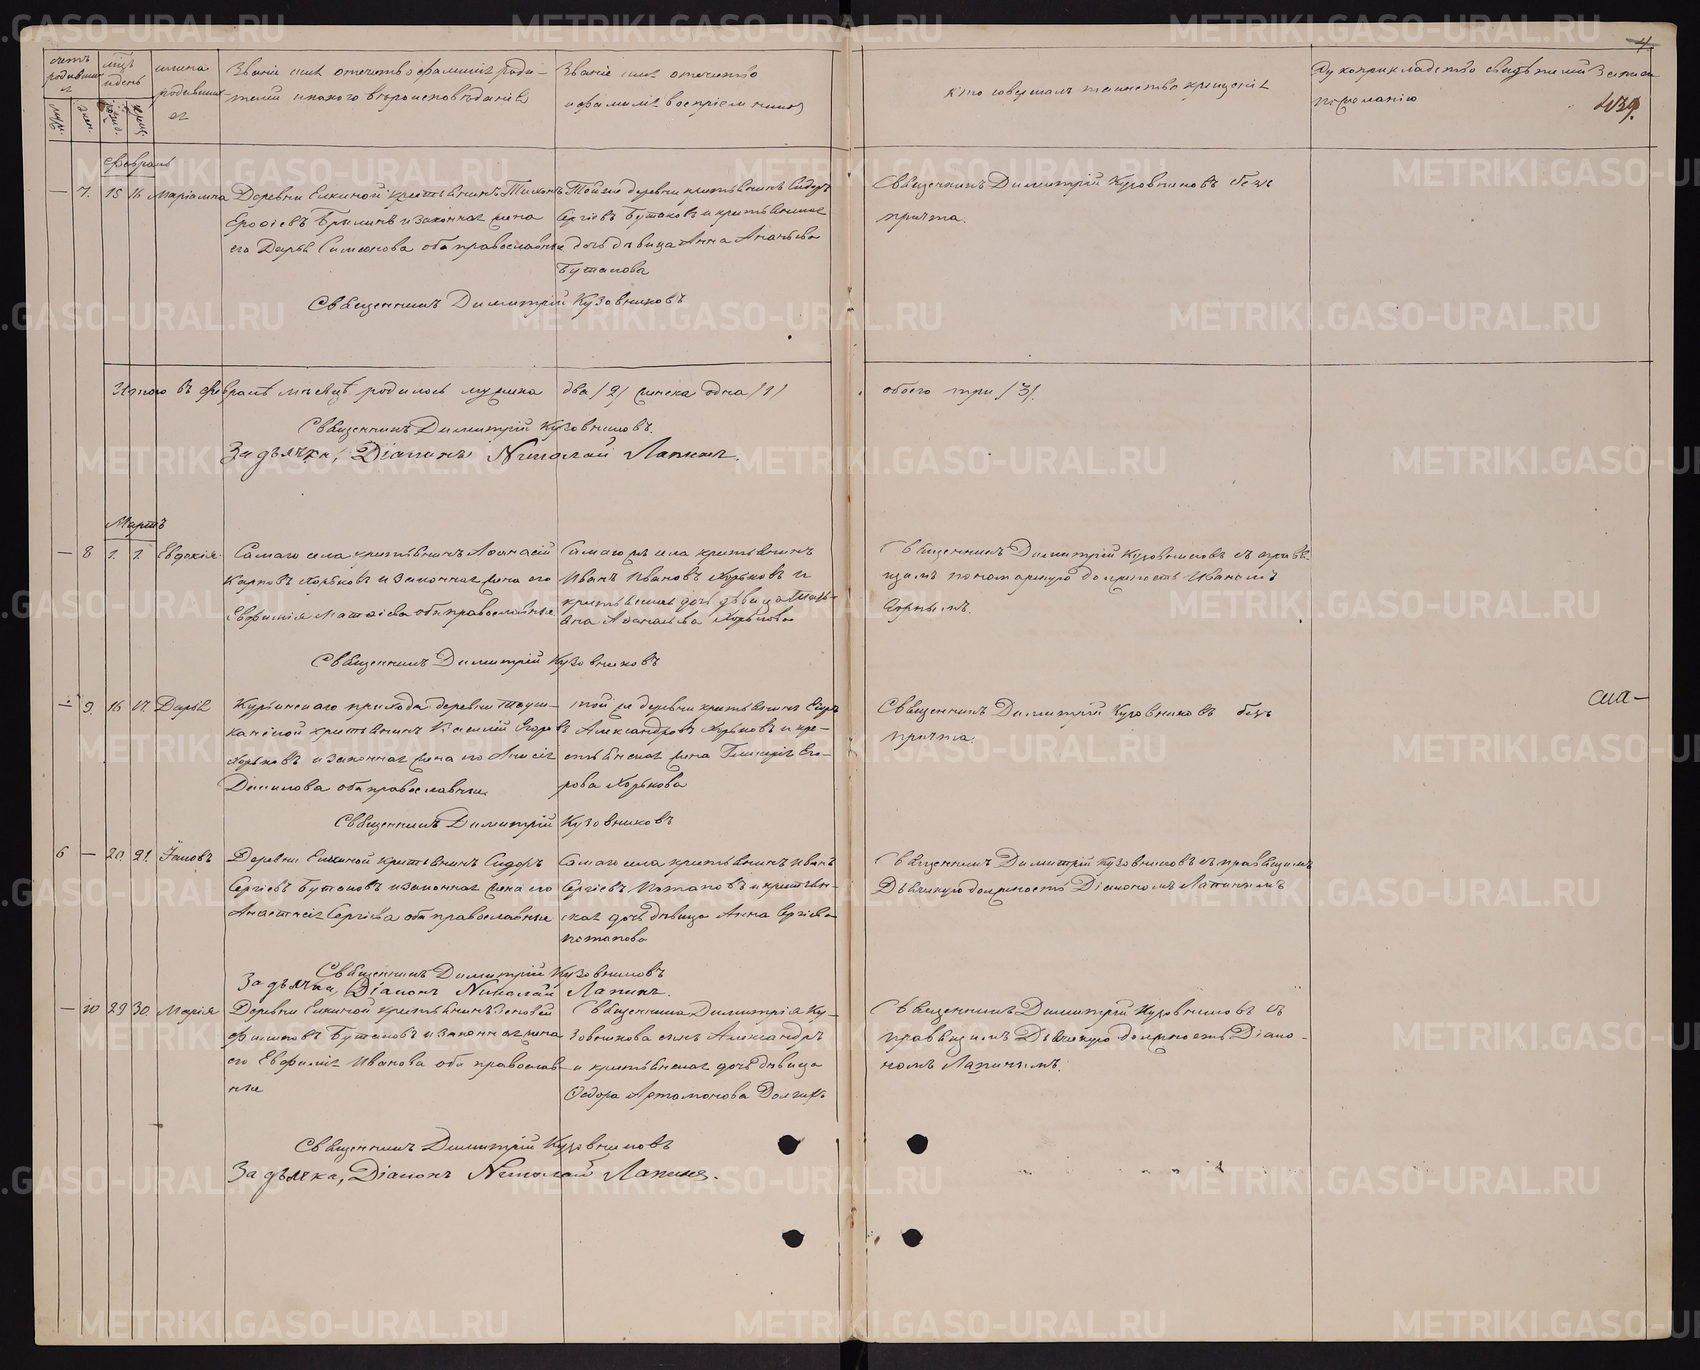 METRIKI.GASO-URAL.RU
счетъ родившихся
муж.
жен.
мѣсяцъ и день
рожд.
крещ.
имена родившихся
Званіе имя отчество фамилія роди-
телей и какого вѣроисповѣданія
Званіе имя отчество
и фамилія воспріемниковъ
кто совершалъ таинство крещенія
Рукоприкладство свидѣтелей записи
по желанію
4.
439.
Февраль
— 7. 15 16 Маріамна
Деревни Елкиной крестьянинъ Тихонъ
Ерофеевъ Брылинъ и законная жена
его Дарья Симеонова оба православные
Той же деревни крестьянинъ Сидоръ
Сергіевъ Бутаковъ и крестьянская
дочь дѣвица Анна Ананьева
Бутакова
Священникъ Димитрій Кузовниковъ безъ
причта.
Священникъ Димитрій Кузовниковъ
Итого въ февралѣ мѣсяцѣ родилось мужска два /2/ женска одна /1/ обоего три /3/.
Священникъ Димитрій Кузовниковъ.
За дьячка, Діаконъ Николай Лапинъ.
Мартъ
— 8 1. 1. Евдокія
Самаго села крестьянинъ Афанасій
Карповъ Хорьковъ и законная жена его
Евфимія Матѳіева оба православные
Самаго же села крестьянинъ
Иванъ Ивановъ Хорьковъ и
крестьянская дочь дѣвица Тать-
яна Афанасьева Хорькова
Священникъ Димитрій Кузовниковъ съ справля-
ющимъ пономарскую должность Иваномъ
Священникъ Димитрій Кузовниковъ
— 9. 16 17. Дарья
Курьинскаго прихода деревни
крестьянинъ Василій Егоровъ
Хорьковъ и законная жена его Анисія
Данилова оба православные
той же деревни крестьянинъ Егоръ
Александровъ Хорьковъ и кре-
стьянская жена Гликерія Его-
рова Хорькова
Священникъ Димитрій Кузовниковъ безъ
причта.
Священникъ Димитрій Кузовниковъ
6 — 20. 21. Іаковъ
Деревни Елкиной крестьянинъ Сидоръ
Сергіевъ Бутаковъ и законная жена его
Анастасія Сергіева оба православные
Самаго села крестьянинъ Иванъ
Сергіевъ Потаповъ и крестьян-
ская дочь дѣвица Анна Сергіева
Потапова
Священникъ Димитрій Кузовниковъ съ правящимъ
Дьяческую должность Діакономъ Лапинымъ
Священникъ Димитрій Кузовниковъ
За дьячка, Діаконъ Николай Лапинъ.
— 10 29 30. Марія
Деревни Елкиной крестьянинъ Зиновей
Филиповъ Бутаковъ и законная жена
его Евфимія Иванова оба православ-
ные
Священника Димитрія Ку-
зовникова сынъ Александръ
и крестьянская дочь дѣвица
Ѳедора Артамонова
Священникъ Димитрій Кузовниковъ съ
правящимъ Дьяческую должность Діако-
номъ Лапинымъ.
Священникъ Димитрій Кузовниковъ
За дьячка, Діаконъ Николай Лапинъ.